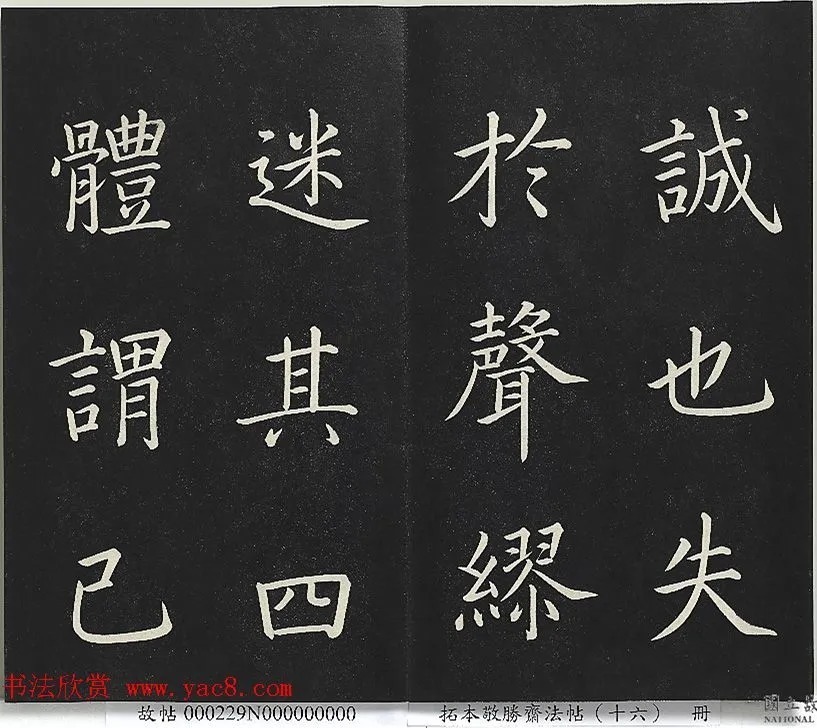 誠也失
於聲繆
迷其四
體謂己
书法欣赏 www.yac8.com
故帖000229N000000000
拓本敬勝齋法帖（十六） 冊
國立故
NATIONAL